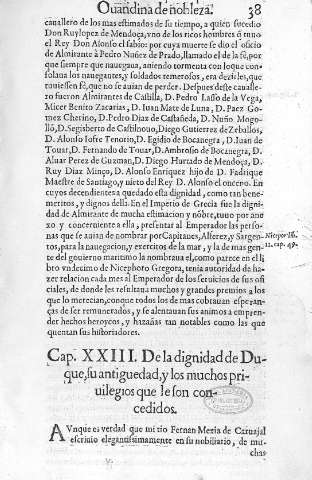 Ouandina de nobleza. 38
cauallero de los mas estimados de su tiempo, a quien sucedio
Don Ruylopez de Mendoça, vno de los ricos hombres q̃ tuuo
el Rey Don Alonso el sabio: por cuya muerte se dio el oficio
de Almirante à Pedro Nuñez de Prado, llamado el de la fè, por
que siempre que nauegaua, auiendo tormenta con loque con-
solaua los nauegantes, y soldados temerosos, era dezirles, que
tuuiessen fè, que no se auian de perder. Despues deste caualle-
ro fueron Almirantes de Castilla, D. Pedro Lasso de la Vega,
Micer Benito Zacarias, D. Iuan Mate de Luna, D. Paez Go-
mez Cherino, D. Pedro Diaz de Castañeda, D. Nuño Mogo-
llō, D. Segisberto de Castilnouo, Diego Gutierrez de Zeballos,
D. Alonso Iofre Tenorio, D. Egidio de Bocanegra, D. Iuan de
Touar, D. Fernando de Touar, D. Ambrosio de Bocanegra, D.
Aluar Perez de Guzman, D. Diego Hurtado de Mendoça, D.
Ruy Diaz Minço, D. Alonso Enriquez hijo de D. Fadrique
Maestre de Santiago, y nieto del Rey D. Alonso el onceno. En
cuyos decendientes a quedado esta dignidad, como tan bene-
meritos, y dignos della. En el Imperio de Grecia fue la dignidad
de Almirante de mucha estimacion y nōbre, tuuo por ane
xo y concerniente a ella, presentar al Emperador las perso-
nas que se auian de nombrar por Capitanes, Alferez, y Sargen-
tos, para la nauegacion, y exercitos de la mar, y la de mas gen-
te del gouierno maritimo la nombraua el, como parece en el li
bro vndecimo de Nicephoro Gregora, tenia autoridad de ha-
zer relacion cada mes al Emperador de los seruicios de sus ofi
ciales, de donde les resultaua muchos y grandes premios a los
que lo merecian, conque todos los de mas cobrauan esperan-
ças de ser remunerados, y se alentauan sus animos a empren-
der hechos heroycos, y hazañas tan notables como las que
quentan sus historiadores.
Cap. XXIII. De la dignidad de Du-
que, su antiguedad, y los muchos pri-
uilegios que le son con-
cedidos.
AVnque es verdad que mi tio Fernan Mexia de Caruajal
escriuio elegantissimamente en su nobiliario, de mu-
chas